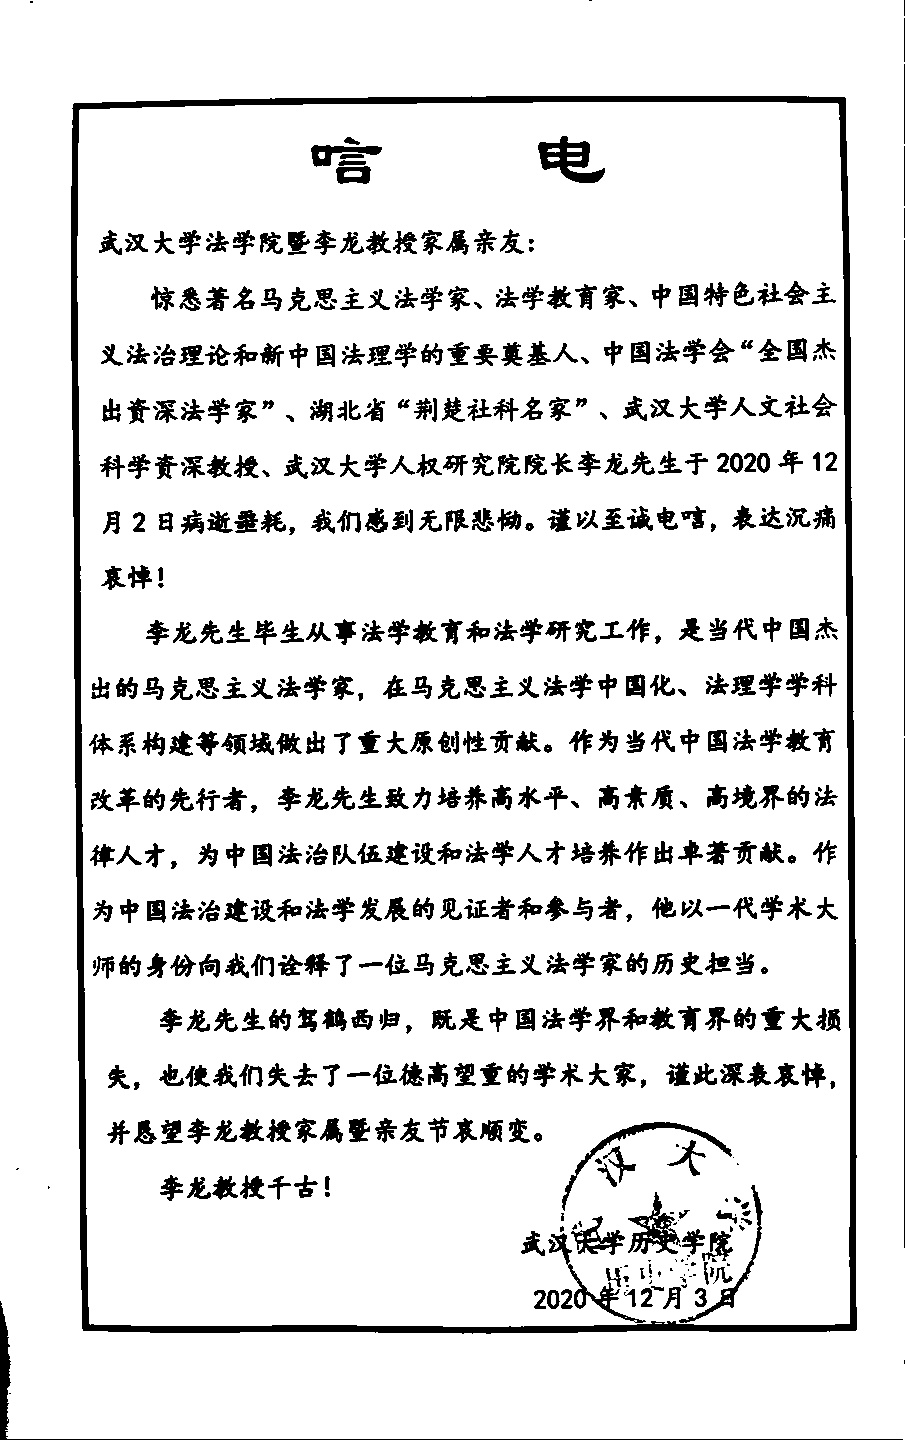 唁 电
武汉大学法学院暨李龙教授家属亲友：
惊悉著名马克思主义法学家、法学教育家、中国特色社会主
义法治理论和新中国法理学的重要奠基人、中国法学会“全国杰
出资深法学家”、湖北省“荆楚社科名家”、武汉大学人文社会
科学资深教授、武汉大学人权研究院院长李龙先生于 2020 年 12
月 2 日病逝噩耗，我们感到无限悲恸。谨以至诚电唁，表达沉痛
哀悼！
李龙先生毕生从事法学教育和法学研究工作，是当代中国杰
出的马克思主义法学家，在马克思主义法学中国化、法理学学科
体系构建等领域做出了重大原创性贡献。作为当代中国法学教育
改革的先行者，李龙先生致力培养高水平、高素质、高境界的法
律人才，为中国法治队伍建设和法学人才培养作出卓著贡献。作
为中国法治建设和法学发展的见证者和参与者，他以一代学术大
师的身份向我们诠释了一位马克思主义法学家的历史担当。
李龙先生的驾鹤西归，既是中国法学界和教育界的重大损
失，也使我们失去了一位德高望重的学术大家，谨此深表哀悼，
并恳望李龙教授家属暨亲友节哀顺变。
李龙教授千古！
汉大
武汉大学历史学院
历史学院
2020 年 12 月 3 日